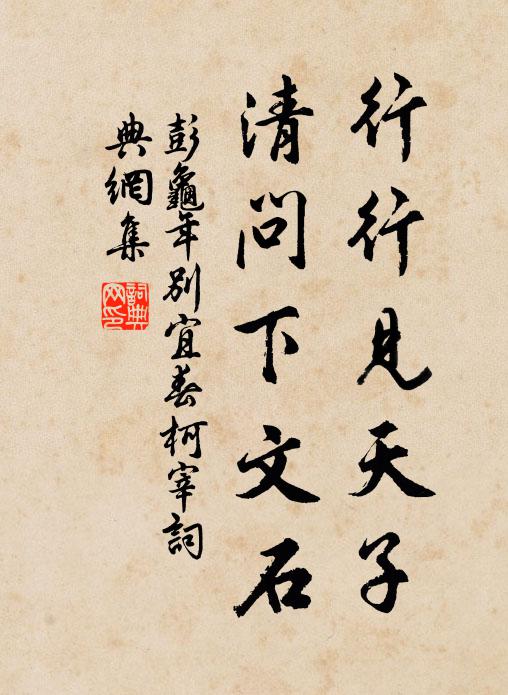 行行見天子
清問下文石
彭龜年別宜春柯宰詞
典網集
詞典
网印